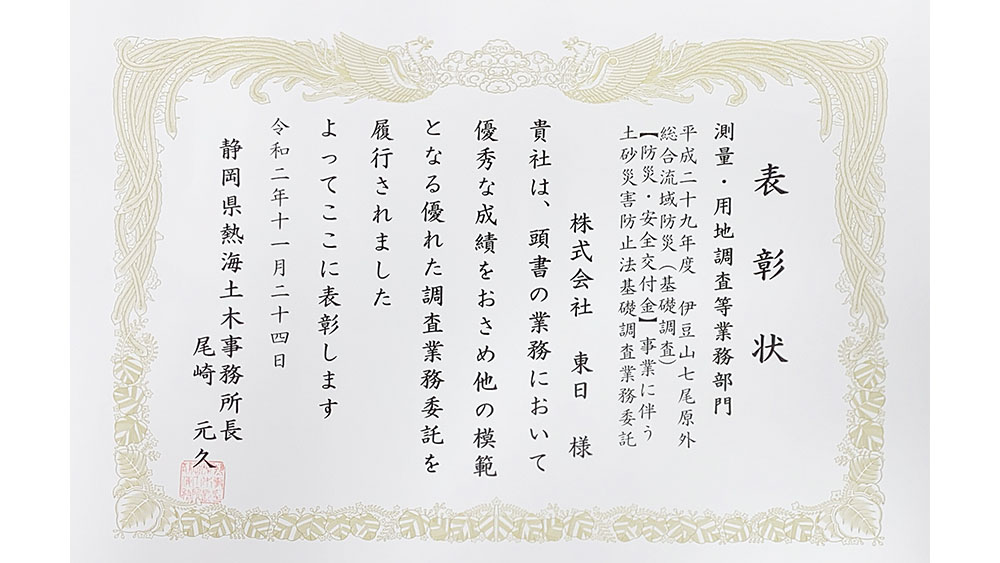 表彰状
測量・用地調査等業務部門
平成二十九年度 伊豆山七尾原外
総合流域防災（基礎調査）
【防災・安全交付金】事業に伴う
土砂災害防止法基礎調査業務委託
株式会社 東日 様
貴社は、頭書の業務において
優秀な成績をおさめ他の模範
となる優れた調査業務委託を
履行されました
よってここに表彰します
令和二年十一月二十四日
静岡県熱海土木事務所長
尾崎 元久